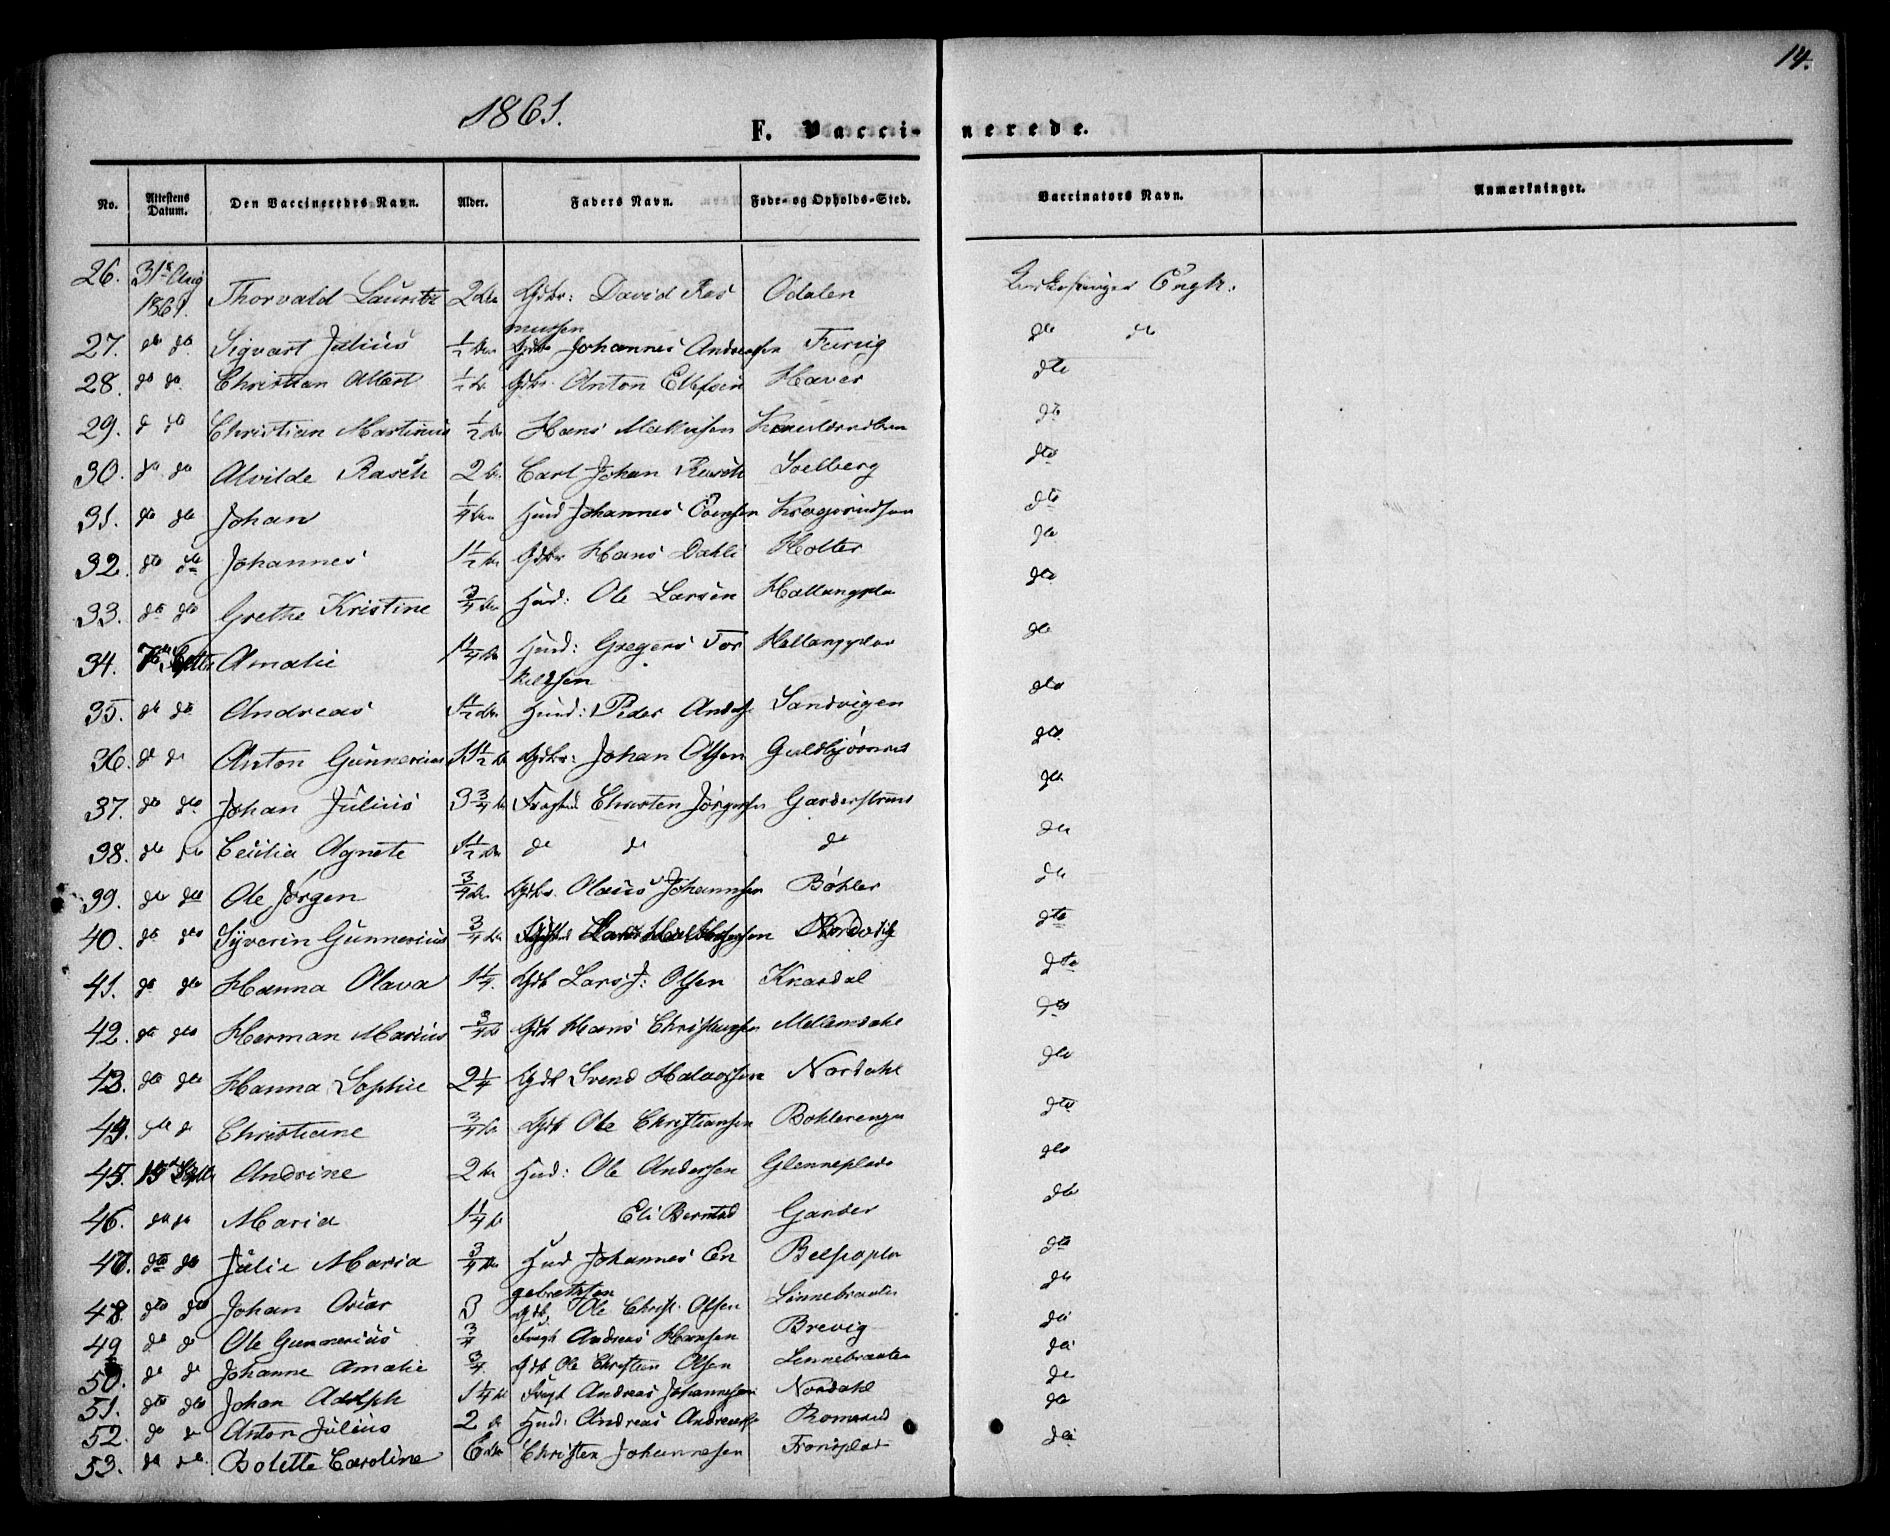 14.
1861.
F. Vaccinerede.
No. Attestens Datum. Den Vaccineredes Navn. Alder. Faders Navn. Føde- og Opholds-Sted. Vaccinators Navn. Anmærkninger.
26. 31te Aug 1861. Thorvald Lauritz 2 Gdbr: David Rasmussen Odalen Engh:
27. do do Sigvart Julius 1/2 Johannes Andersen do do
28. do do Christian Albert 1/2 Gbr. Anton Ellefsen Haver dto
29. d do Christian Martinus 1/2 Hans Mathisen do
30. do do Alvilde Rasch 2 Carl Johan Rasch Soelberg dto
31. do do Johan 1/4 Huud Johannes Evensen dto
32. do do Johannes 1 1/2 Gdbr Hans Dahli Holter do
33. do do Grethe Kristine 3/4 Huud: Ole Larsen Hallangpla do
34. 7de Septbr Amalie 1 1/4 Huud: Gregers Torkelsen Hallangplad do
35. do do Andreas 1 1/2 Huud: Peder Anders Sandvigen do
36. do do Anton Gunnerius 1 1/2 Gdbr: Johan Olsen Guldbjørnrus do
37. do do Johan Julius 3 3/4 Christen Jørgensen Garderstrand do
38. do do Cecilia Agnete 1 1/2 do do do do
39. do do Ole Jørgen 3/4 Gdbr. Olaus Johannesen Bøhler do
40. do do Syverin Gunnerius 3/4 Nordvig dto
41. do do Hanna Olava 1 1/4. Gdb Lars J: Olsen Knardal dto
42. do do Herman Marius 3/4 Gdb Hans Christensen Mellemdahl do
43. do do Hanna Sophie 2 1/4 Gdb Svend Halvorsen Nordahl do
44. do d Christiane 3/4 Gdb Ole Christiansen Bøhlerenga dto
45. 15 Septbr Andrine 2 Huud: Ole Andersen Glenneplads do
46. do do Maria 1 1/4 Eli Berntsd Garder do
47. do do Julie Maria 3/4 Huud Johannes Engebretsen dto
48. do do Johan Oscar 3 Gdb Ole Christ. Olsen Linnebraaten do
49 do d Ole Gunnerius 3/4 Andreas Hansen Brevig do
50. do do Johanne Amalie 3/4. Gdb Ole Christian Olsen Linnebraaten do
51. do do Johan Adolph 1 1/4 Andreas Johannesen Nordahl do
52. do do Anton Julius 2 Huud: Andreas Andreasen do
53. do do Bolette Caroline 6 Christen Johannesen Tronsplad do